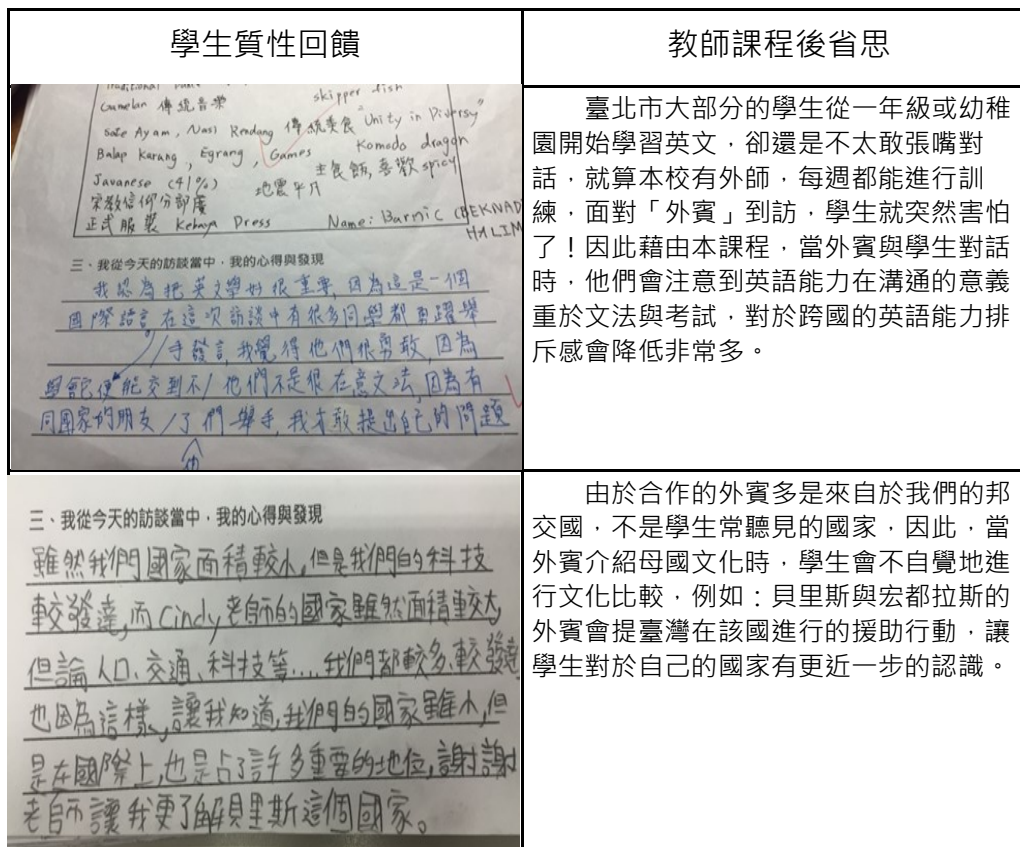 學生質性回饋
教師課程後省思
Gamelan 傳統音樂
skipper dish
Sate Ayam, Nasi Rendang 傳統美食 "Unity in Diversy"
Balap Karang, Egrang, Games
Komodo dragon
主食飯,喜歡 spicy
Javanese (41%)
宗教信仰分部廣
正式服裝 Kebaya Press
Name: Barnic (BEKNAD
HALIM
三、我從今天的訪談當中,我的心得與發現
我認為把英文學好很重要,因為這是一個
國際語言,在這次訪談中有很多同學都踴躍舉
手發言,我覺得他們很勇敢,因為
學會它便能交到不/他們不是很在意文法,因為有
同國家的朋友/了們舉手,我才敢提出自己的問題
他
臺北市大部分的學生從一年級或幼稚
園開始學習英文,卻還是不太敢張嘴對
話,就算本校有外師,每週都能進行訓
練,面對「外賓」到訪,學生就突然害怕
了!因此藉由本課程,當外賓與學生對話
時,他們會注意到英語能力在溝通的意義
重於文法與考試,對於跨國的英語能力排
斥感會降低非常多。
三、我從今天的訪談當中,我的心得與發現
雖然我們國家面積較小,但是我們的科技
較發達,而Cindy老師的國家雖然面積較大,
但論人口、交通、科技等...,我們都較多、較發達
也因為這樣,讓我知道,我們的國家雖小,但
是在國際上,也是占了許多重要的地位,謝謝
老師讓我更了解貝里斯這個國家。
由於合作的外賓多是來自於我們的邦
交國,不是學生常聽見的國家,因此,當
外賓介紹母國文化時,學生會不自覺地進
行文化比較,例如:貝里斯與宏都拉斯的
外賓會提臺灣在該國進行的援助行動,讓
學生對於自己的國家有更近一步的認識。